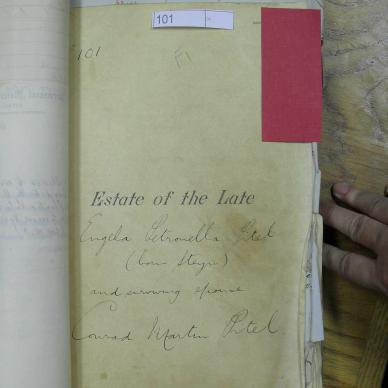 101
101
Estate of the Late
Engela Petronella Pitel
(born Steyn)
and surviving spouse
Conrad Martin Pitel